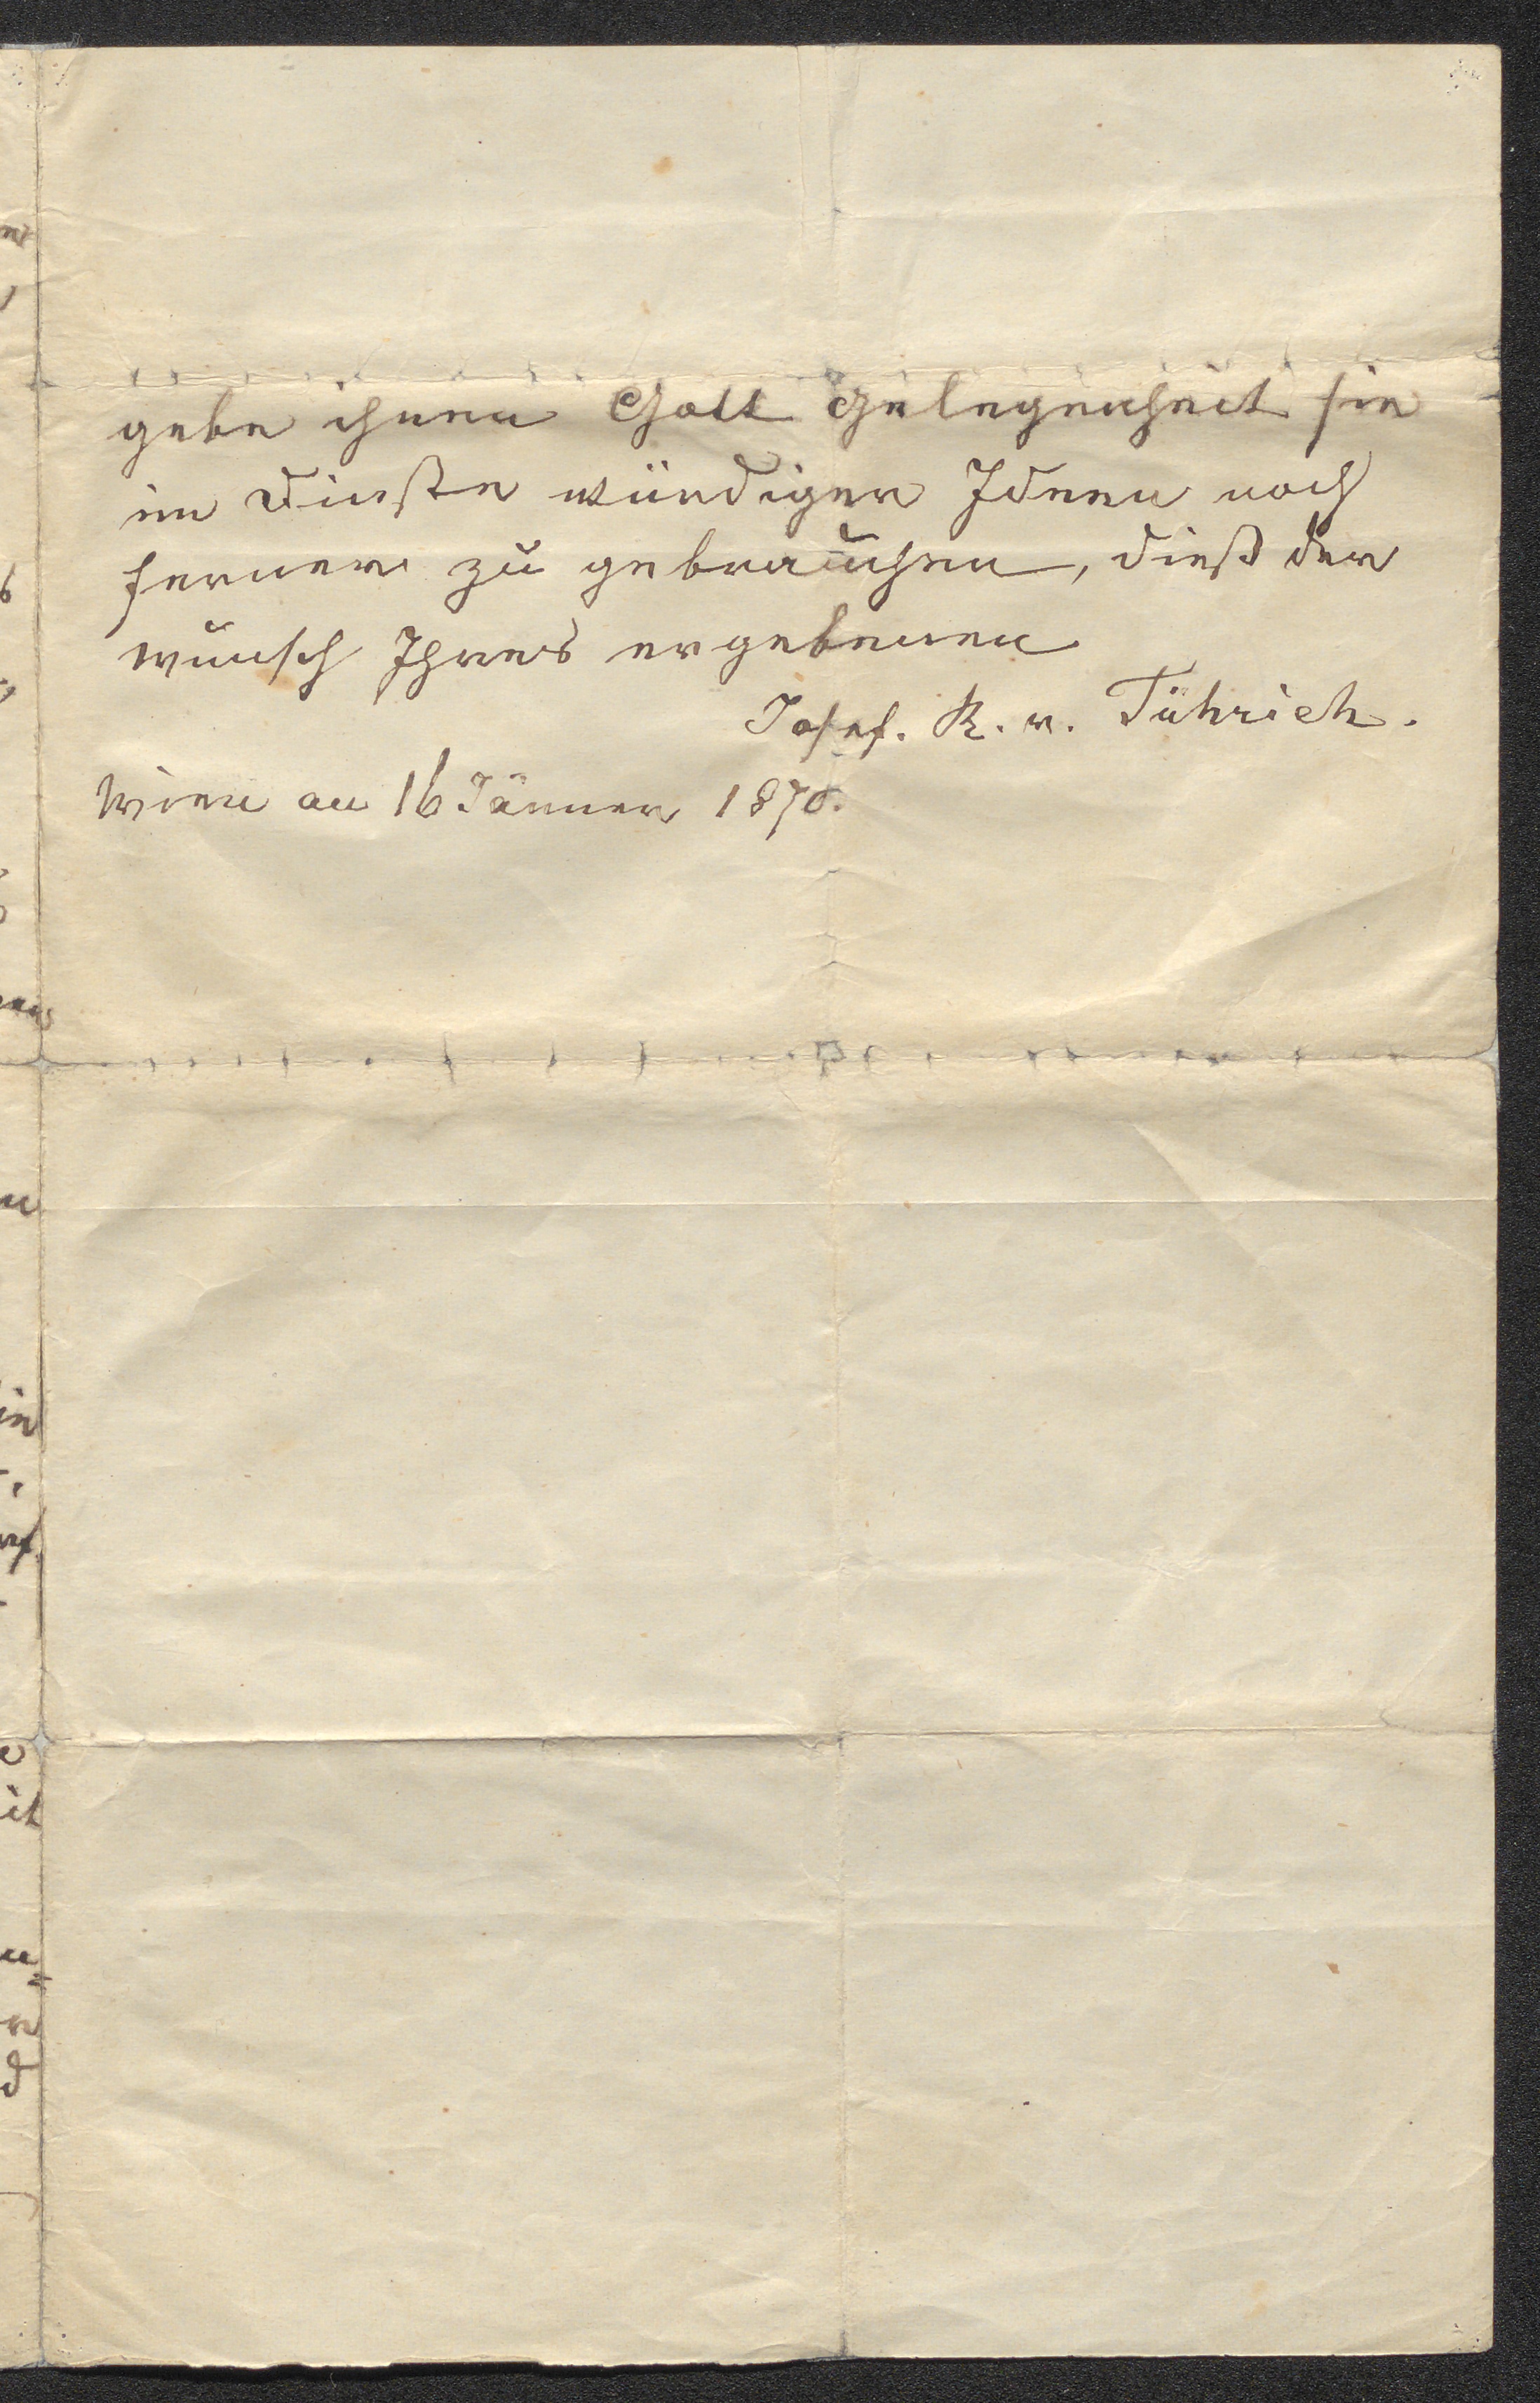 gebe ihnen Gott Gelegenheit sie
im Dinste würdiger Ideen noch
ferner zu gebrauchen, dieß der
wunsch Ihres ergebenen
Josef. R. v. Führich.
Wien am 16 Jänner 1870.